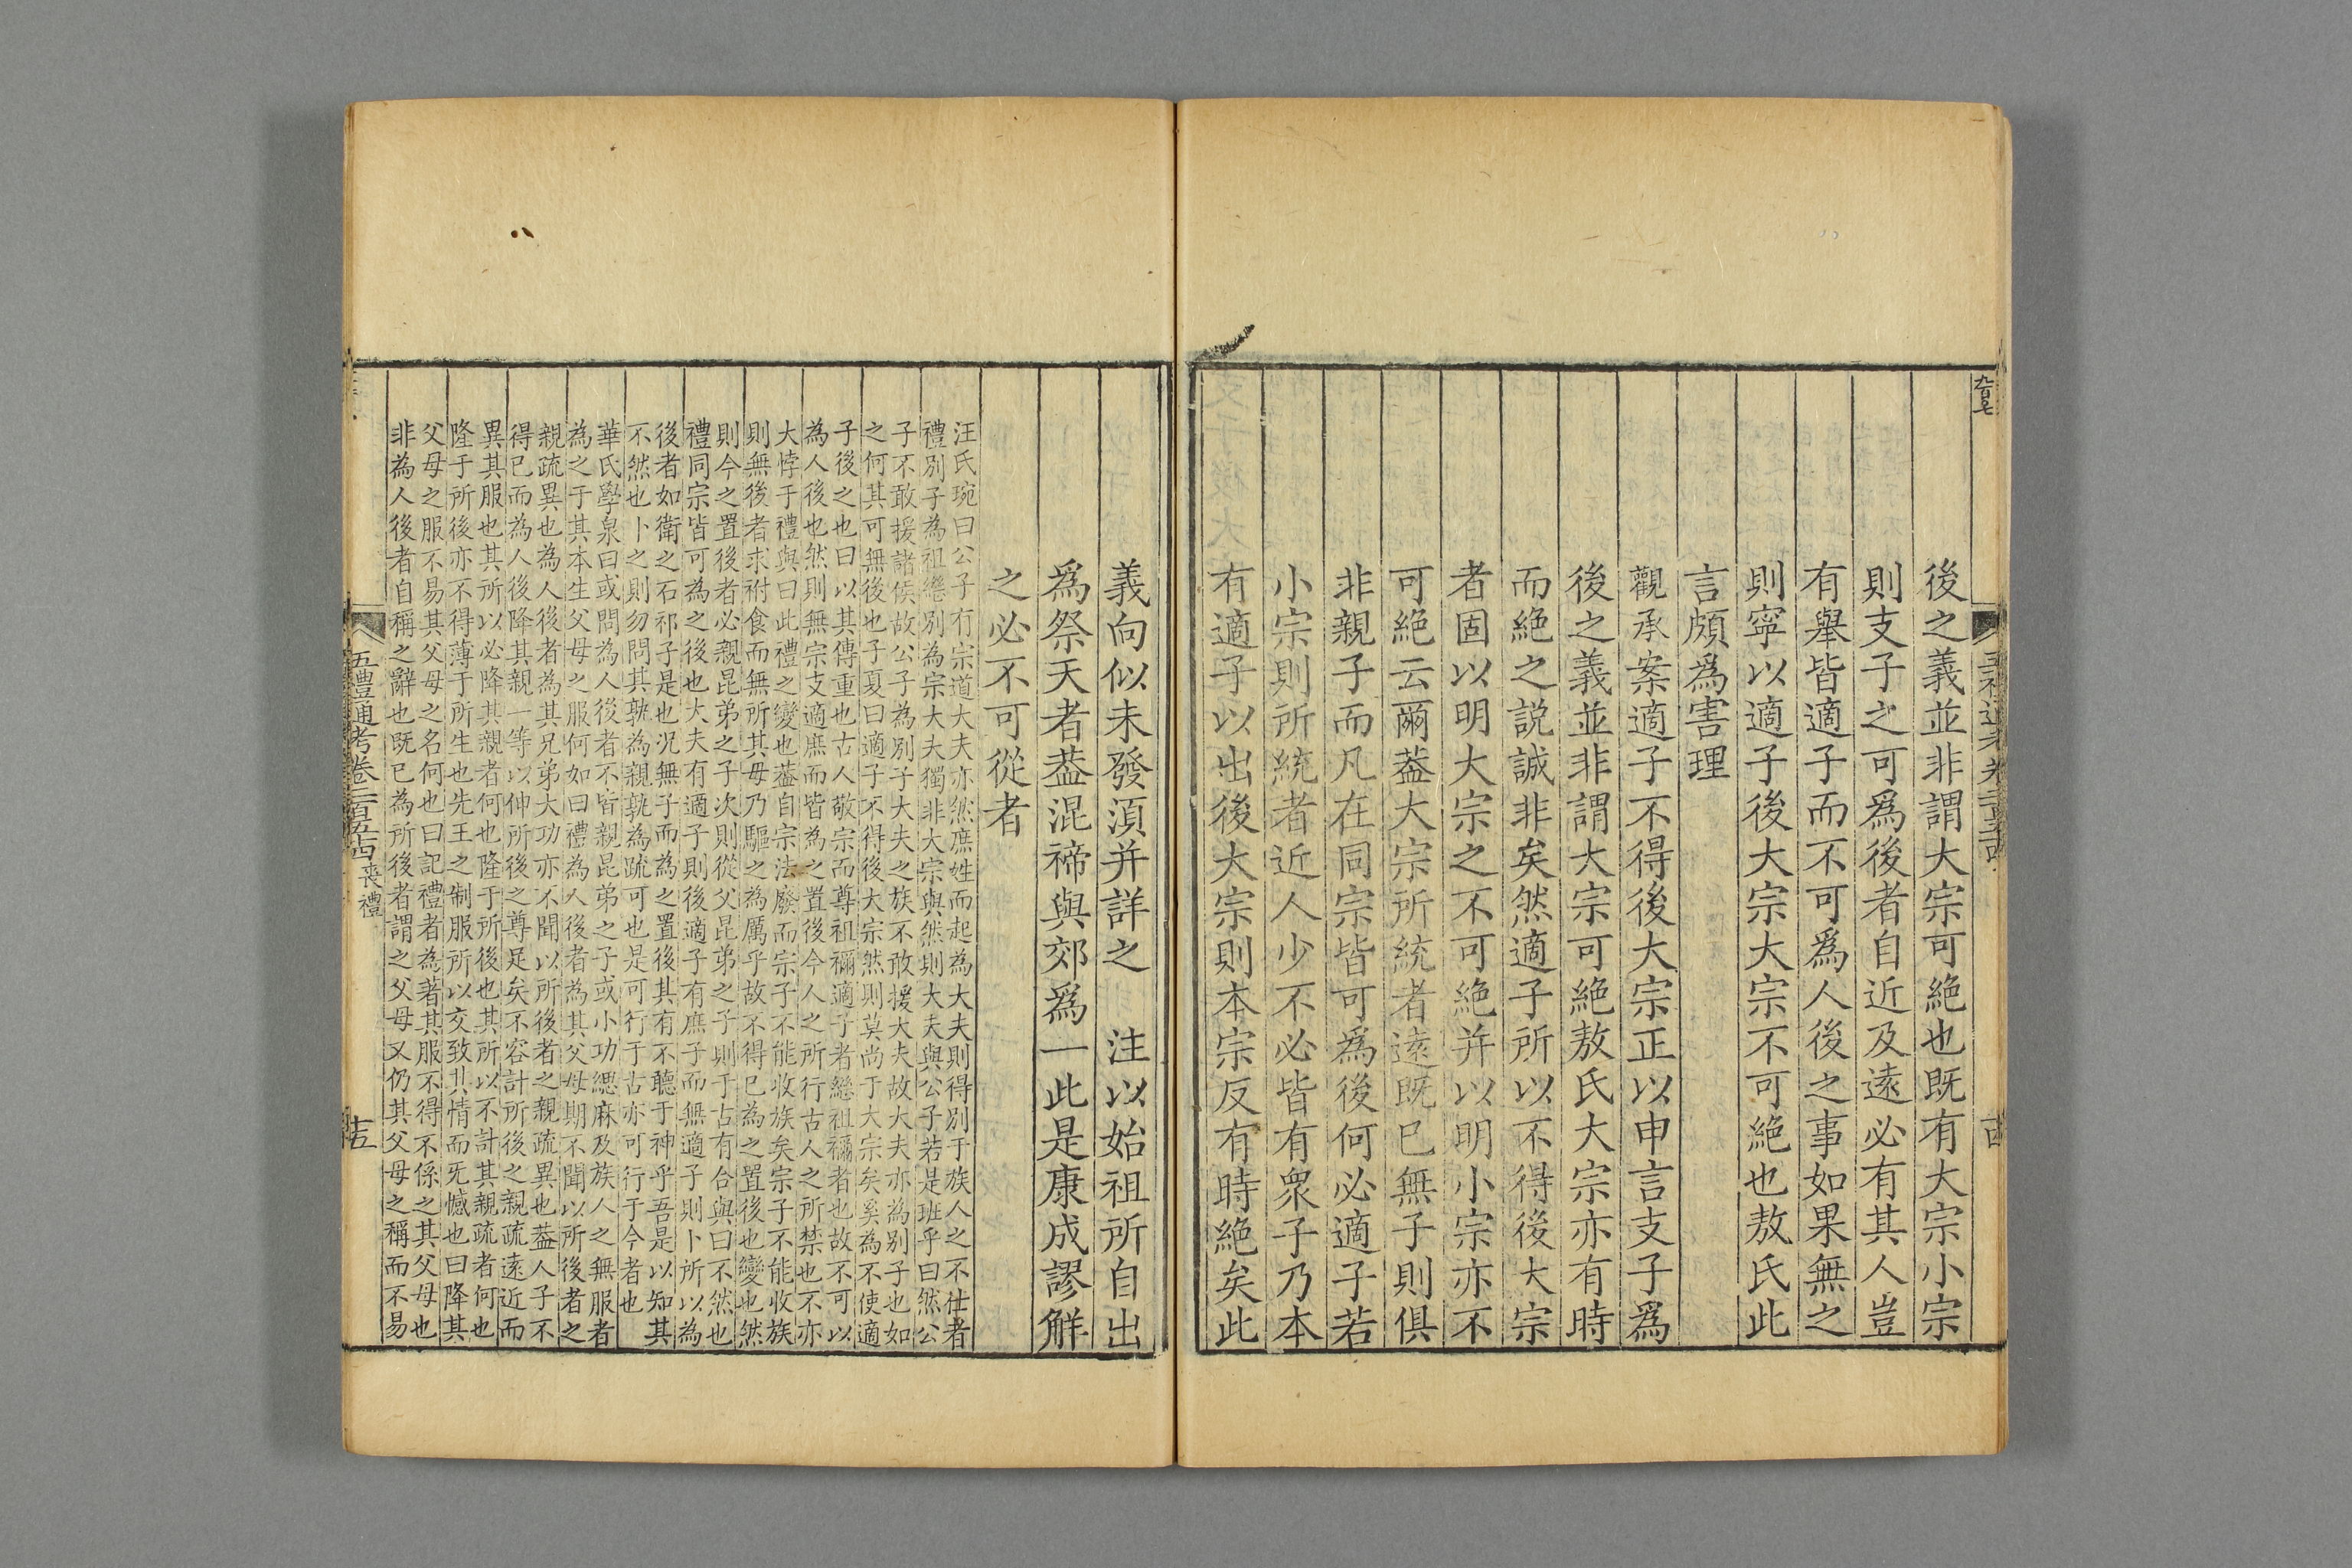 後之義並非謂大宗可絶也既有大宗小宗
則支子之可爲後者自近及遠必有其人豈
有舉皆適子而不可爲人後之事如果無之
則寧以適子後大宗大宗不可絶也敖氏此
言頗爲害理
觀承案適子不得後大宗正以申言支子爲
後之義並非謂大宗可絶敖氏大宗亦有時
而絶之説誠非矣然適子所以不得後大宗
者固以明大宗之不可絶并以明小宗亦不
可絶云爾葢大宗所統者遠既已無子則俱
非親子而凡在同宗皆可爲後何必適子若
小宗則所統者近人少不必皆有衆子乃本
有適子以出後大宗則本宗反有時絶矣此
義向似未發湏并詳之　注以始祖所自出
爲祭天者葢混禘與郊爲一此是康成謬解
之必不可從者
汪氏琬曰公子有宗道大夫亦然庶姓而起為大夫則得別于族人之不仕者
禮別子為祖繼別為宗大夫獨非大宗與然則大夫與公子若是班乎曰然公
子不敢援諸侯故公子為別子大夫之族不敢援大夫故大夫亦為別子也如
之何其可無後也子夏曰適子不得後大宗然則莫尚于大宗矣奚為不使適
子後之也曰以其傳重也古人敬宗而尊祖禰適子者繼祖禰者也故不可以
為人後也然則無宗支適庶而皆為之置後今人之所行古人之所禁也不亦
大悖于禮與曰此禮之變也葢自宗法廢而宗子不能收族矣宗子不能收族
則無後者求祔食而無所其毋乃驅之為厲乎故不得已為之置後也變也然
則今之置後者必親昆弟之子次則從父昆弟之子則于古有合與曰不然也
禮同宗皆可為之後也大夫有適子則後適子有庶子而無適子則卜所以為
後者如衛之石祁子是也况無子而為之置後其有不聽于神乎吾是以知其
不然也卜之則勿問其孰為親孰為疏可也是可行于古亦可行于今者也
華氏學泉曰或問為人後者不皆親昆弟之子或小功緦麻及族人之無服者
為之于其本生父母之服何如曰禮為人後者為其父母期不聞以所後者之
親疏異也為人後者為其兄弟大功亦不聞以所後者之親疏異也葢人子不
得已而為人後降其親一等以伸所後之尊足矣不容計所後之親疏遠近而
異其服也其所以必降其親者何也隆于所後也其所以不計其親疏者何也
隆于所後亦不得薄于所生也先王之制服所以交致其情而旡憾也曰降其
父母之服不易其父母之名何也曰記禮者為著其服不得不係之其父母也
非為人後者自稱之辭也既已為所後者謂之父母又仍其父母之稱而不易
五禮通考卷二百五十四 喪禮